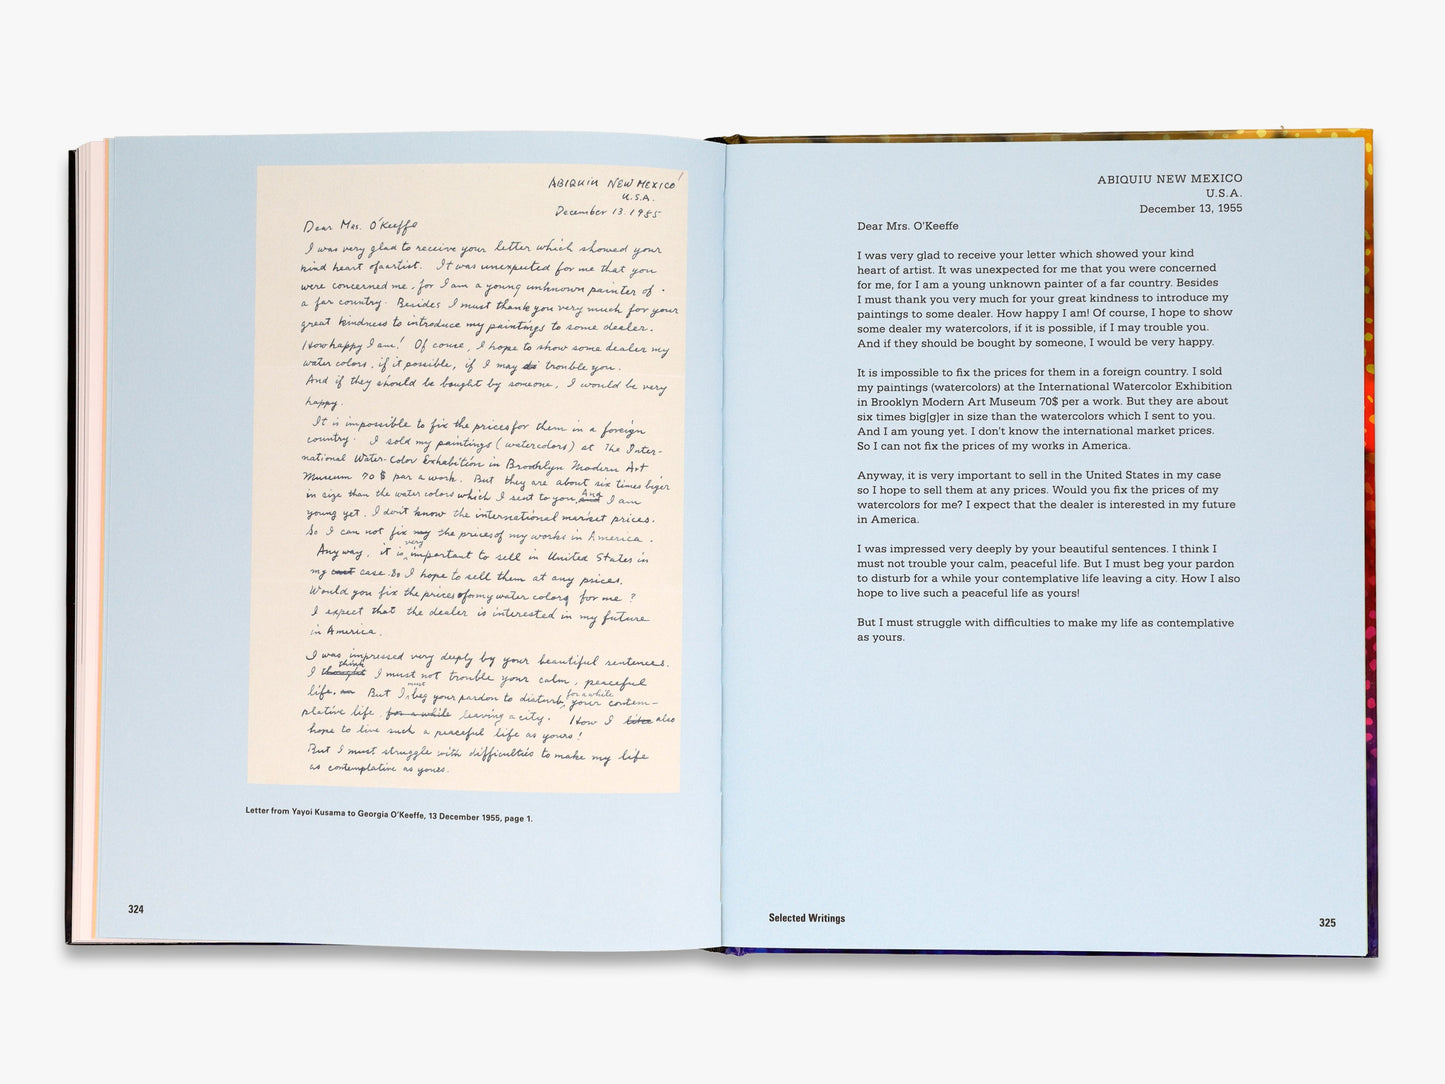 ABIQUIU NEW MEXICO
U.S.A.
December 13. 1955
Dear Mrs. O'Keeffe
I was very glad to receive your letter which showed your
kind heart of artist. It was unexpected for me that you
were concerned me, for I am a young unknown painter of
a far country. Besides I must thank you very much for your
great kindness to introduce my paintings to some dealer.
How happy I am! Of course, I hope to show some dealer my
water colors, if it possible, if I may trouble you.
And if they should be bought by someone, I would be very
happy.
It is impossible to fix the prices for them in a foreign
country. I sold my paintings (watercolors) at The Inter-
national Water-Color Exhibition in Brooklyn Modern Art
Museum 70 $ par a work. But they are about six times biger
in size than the water colors which I sent to you. And I am
young yet. I don't know the international market prices.
So I can not fix the prices of my works in America.
Anyway, it is very important to sell in United States in
my case. So I hope to sell them at any prices.
Would you fix the prices of my water colors for me?
I expect that the dealer is interested in my future
in America.
I was impressed very deeply by your beautiful sentences.
I think I must not trouble your calm, peaceful
life. But I must beg your pardon to disturb for a while your contem-
plative life leaving a city. How I also
hope to live such a peaceful life as yours!
But I must struggle with difficulties to make my life
as contemplative as yours.
Letter from Yayoi Kusama to Georgia O'Keeffe, 13 December 1955, page 1.
324
ABIQUIU NEW MEXICO
U.S.A.
December 13, 1955
Dear Mrs. O'Keeffe
I was very glad to receive your letter which showed your kind
heart of artist. It was unexpected for me that you were concerned
for me, for I am a young unknown painter of a far country. Besides
I must thank you very much for your great kindness to introduce my
paintings to some dealer. How happy I am! Of course, I hope to show
some dealer my watercolors, if it is possible, if I may trouble you.
And if they should be bought by someone, I would be very happy.
It is impossible to fix the prices for them in a foreign country. I sold
my paintings (watercolors) at the International Watercolor Exhibition
in Brooklyn Modern Art Museum 70$ per a work. But they are about
six times big[g]er in size than the watercolors which I sent to you.
And I am young yet. I don't know the international market prices.
So I can not fix the prices of my works in America.
Anyway, it is very important to sell in the United States in my case
so I hope to sell them at any prices. Would you fix the prices of my
watercolors for me? I expect that the dealer is interested in my future
in America.
I was impressed very deeply by your beautiful sentences. I think I
must not trouble your calm, peaceful life. But I must beg your pardon
to disturb for a while your contemplative life leaving a city. How I also
hope to live such a peaceful life as yours!
But I must struggle with difficulties to make my life as contemplative
as yours.
Selected Writings
325